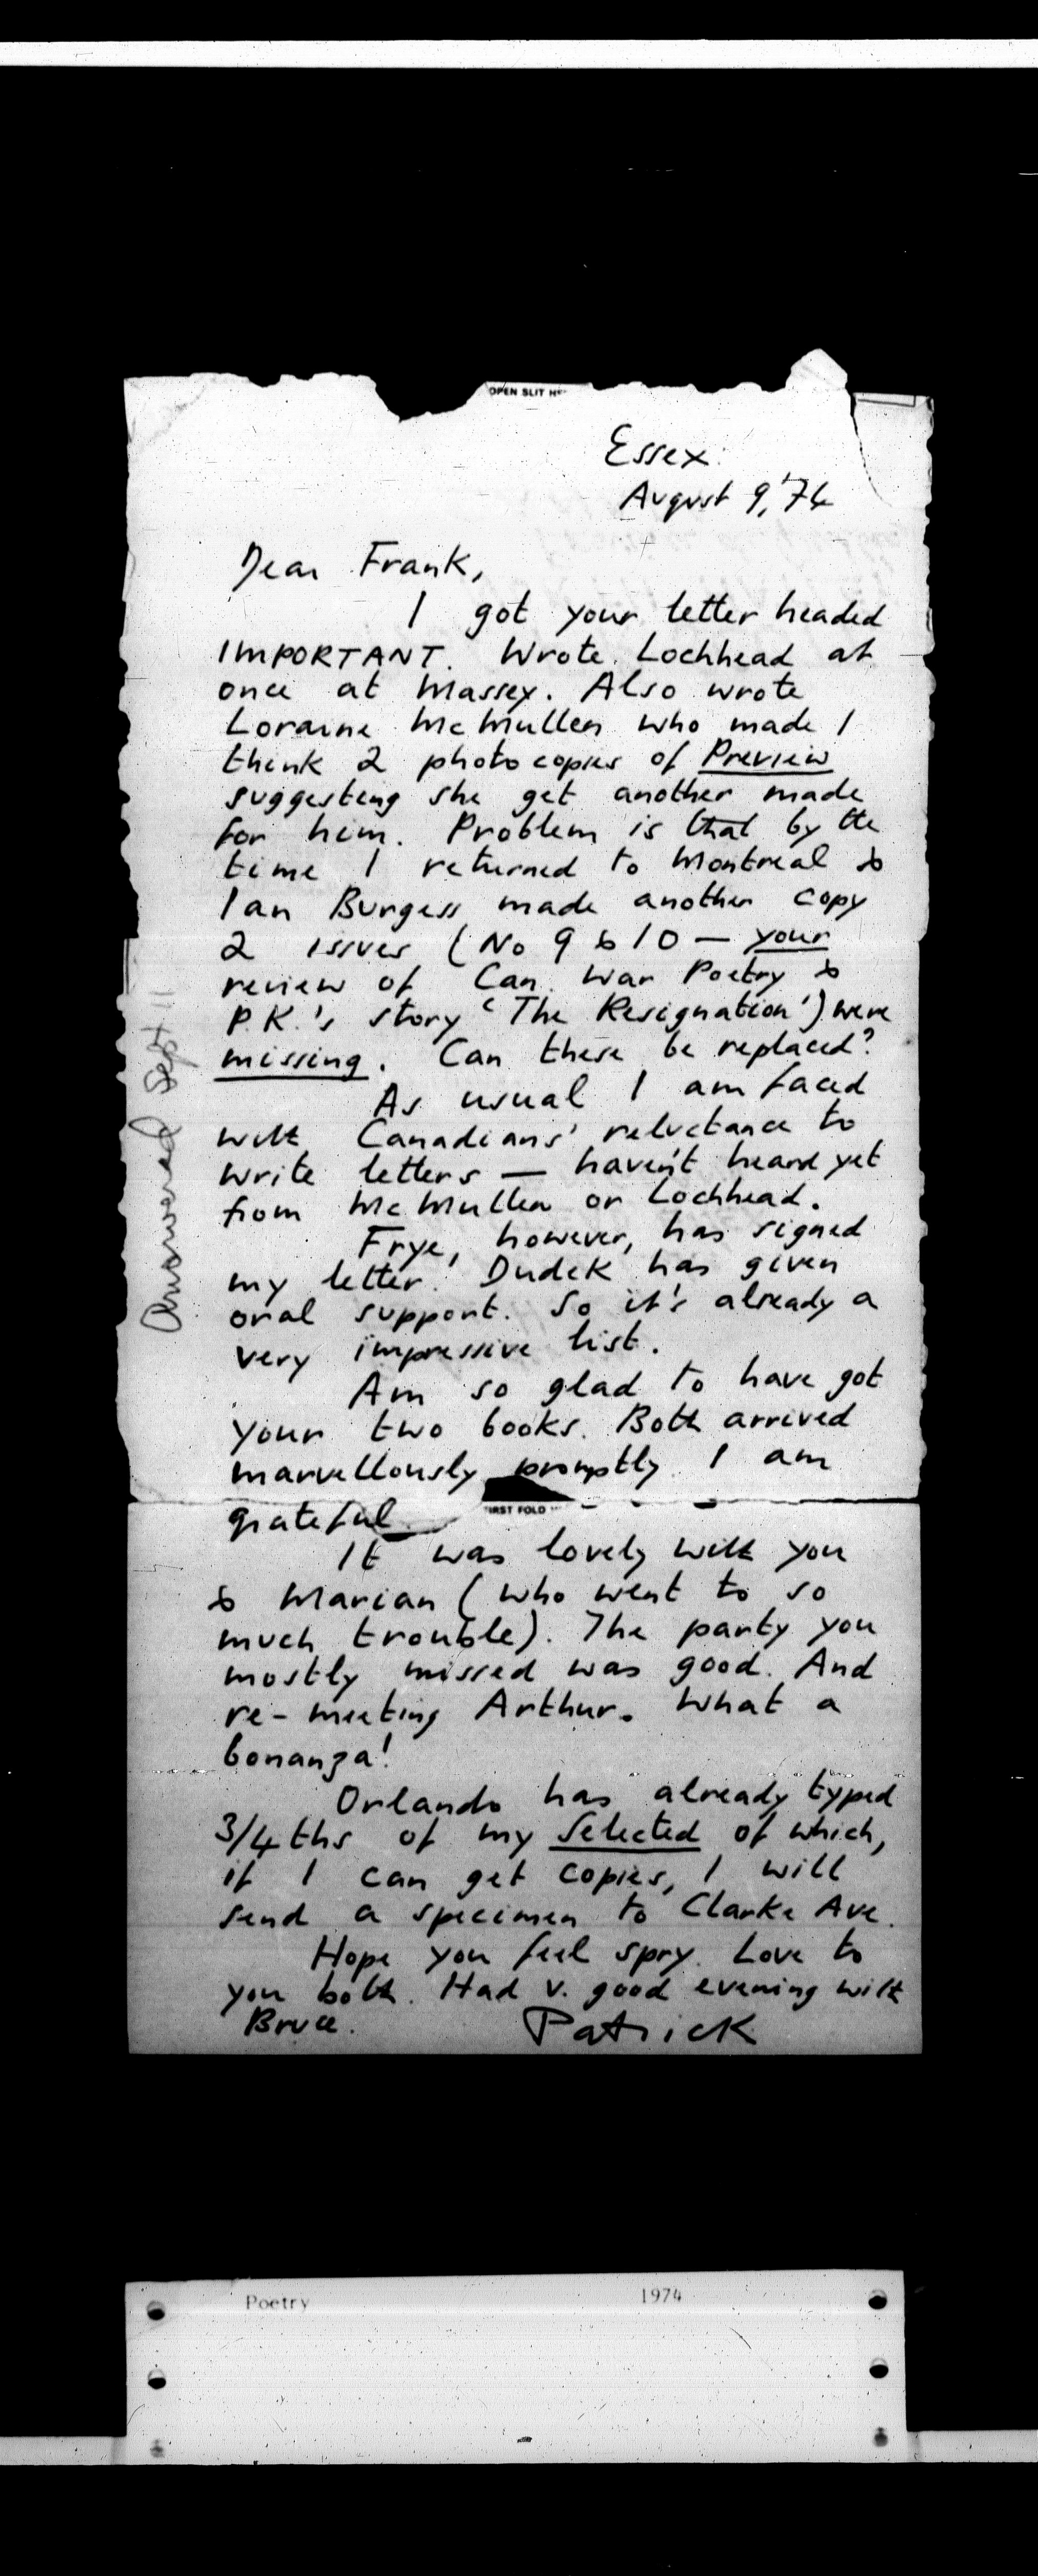 OPEN SLIT HE
Essex
August 9, '74
Dear Frank,
I got your letter headed
IMPORTANT. Wrote Lochhead at
once at Massey. Also wrote
Loraine McMullen who made I
think 2 photocopies of Preview
suggesting she get another made
for him. Problem is that by the
time I returned to Montreal &
Ian Burgess made another copy
2 issues (No 9 & 10 — your
review of Can. War Poetry &
P.K.'s story 'The Resignation') were
missing. Can these be replaced?
As usual I am faced
with Canadians' reluctance to
write letters — haven't heard yet
from McMullen or Lochhead.
Frye, however, has signed
my letter. Dudek has given
oral support. So it's already a
very impressive list.
Am so glad to have got
your two books. Both arrived
marvellously promptly. I am
FIRST FOLD
grateful
It was lovely with you
& Marian (who went to so
much trouble). The party you
mostly missed was good. And
re-meeting Arthur. What a
bonanza!
Orlando has already typed
3/4ths of my Selected of which,
if I can get copies, I will
send a specimen to Clarke Ave.
Hope you feel spry. Love to
you both. Had v. good evening with
Bruce.
Patrick
Answered Sept 11
Poetry 1974